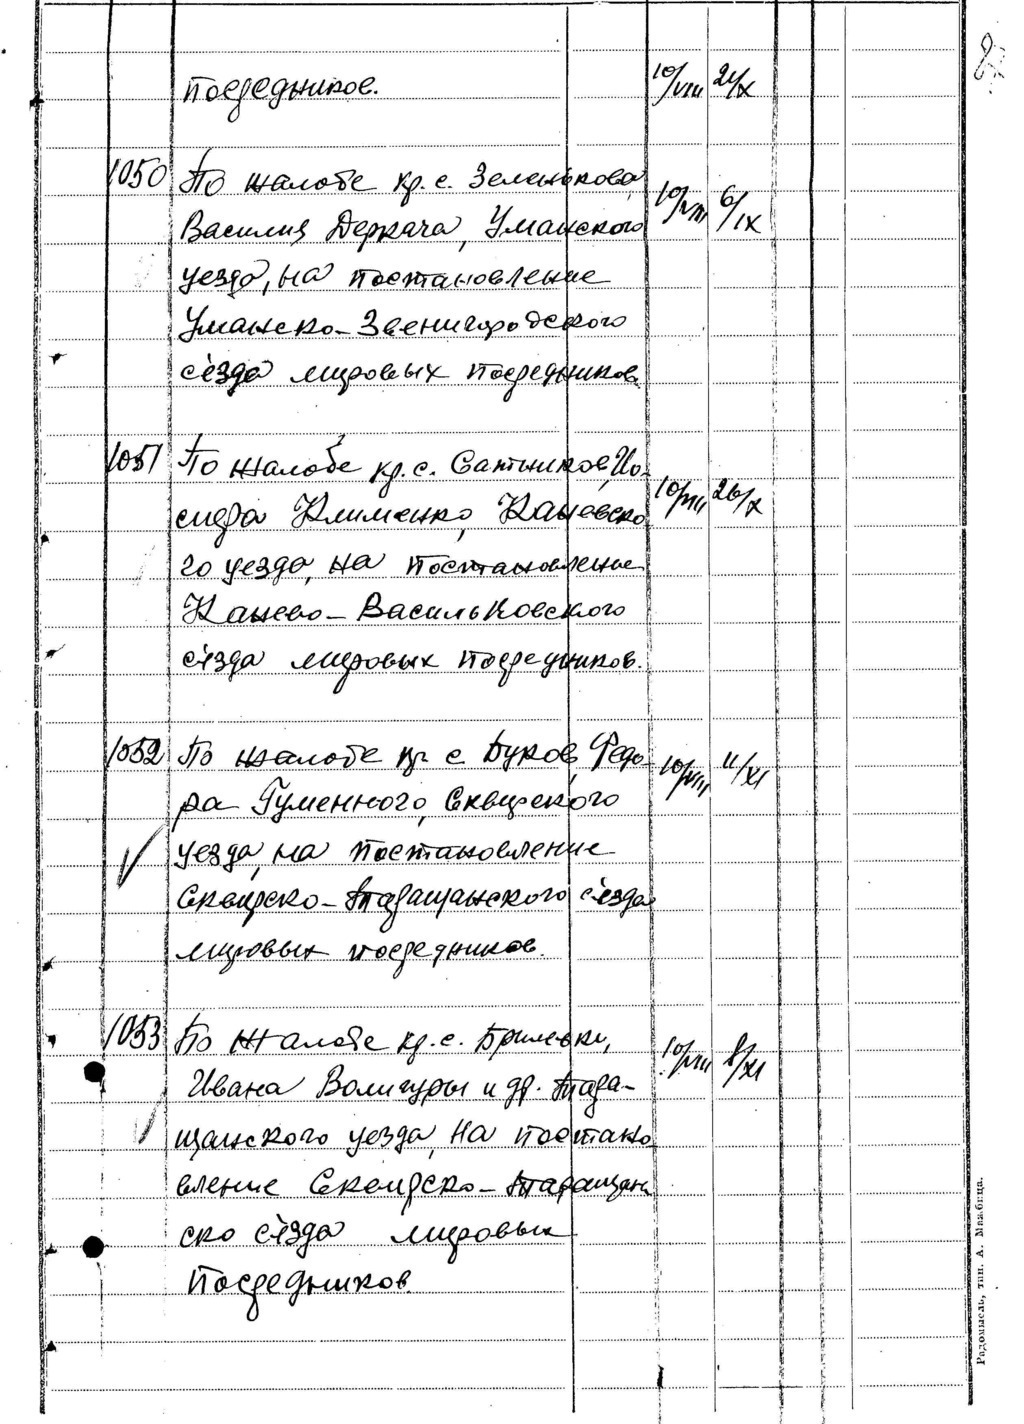 посредников. 10/VIII 21/X
1050 По жалобе кр. с. Зеленькова,
Василия Деркача, Уманского 10/VIII 6/IX
уезда, на постановление
Уманско-Звенигородского
съезда мировых посредников
1051 По жалобе кр. с. Сотников, Ио-
сифа Клименко, Каневско- 10/VIII 26/X
го уезда, на постановление
Канево-Васильковского
с'езда мировых посредников.
1052 По жалобе кр с Буков, Федо-
ра Гуменного, Сквирского 10/VIII 11/XI
уезда, на постановление
Сквирско-Таращанского с'езда
мировых посредников.
1053 По жалобе кр. с. Брилевки,
Ивана Волигуры и др. Тара- 10/VIII 8/XI
щанского уезда, на постано
вление Сквирско-Таращан
ско с'езда мировых
посредников.
Радомысль, тип. А. Манбица.